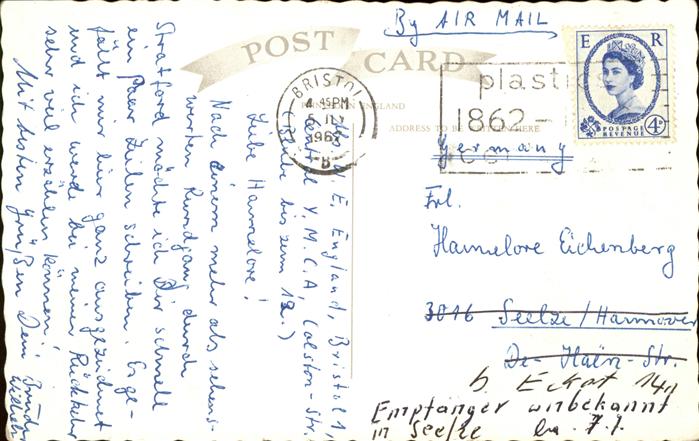 By AIR MAIL
POST CARD
E R
POSTAGE
REVENUE
4D
BRISTOL
4.45PM
5 JLY
196
B
plastics
1862 -
IN ENGLAND
ADDRESS TO BE WRITTEN HERE
Germany
Frl.
Hannelore Eichenberg
3016 Seelze/Hannover
De-Haën-Str.
b. Eckat 14
Empfänger unbekannt
in Seelze
E, England, Bristol 1,
Central Y.M.C.A, Colston-Str.
(bis zum 12.)
Liebe Hannelore!
Nach einem mehr als sehens-
werten Rundgang durch
Stratford möchte ich Dir schnell
ein paar Zeilen schreiben. Es ge-
fällt mir hier ganz ausgezeichnet
und ich werde bei meiner Rückkehr
sehr viel erzählen können!
Mit besten Grüßen Dein